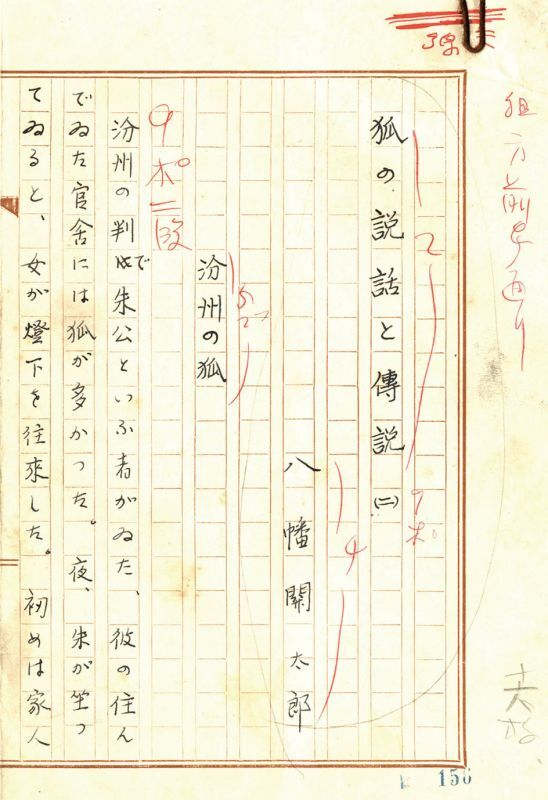 組方前号通り
狐の説話と傳説(二)
2
9ポ
八幡關太郎
4
汾州の狐
9ポ二段
汾州の判官で朱公といふ者がゐた、彼の住ん
でゐた官舍には狐が多かつた。夜、朱が坐つ
てゐると、女が燈下を往來した。初めは家人
156